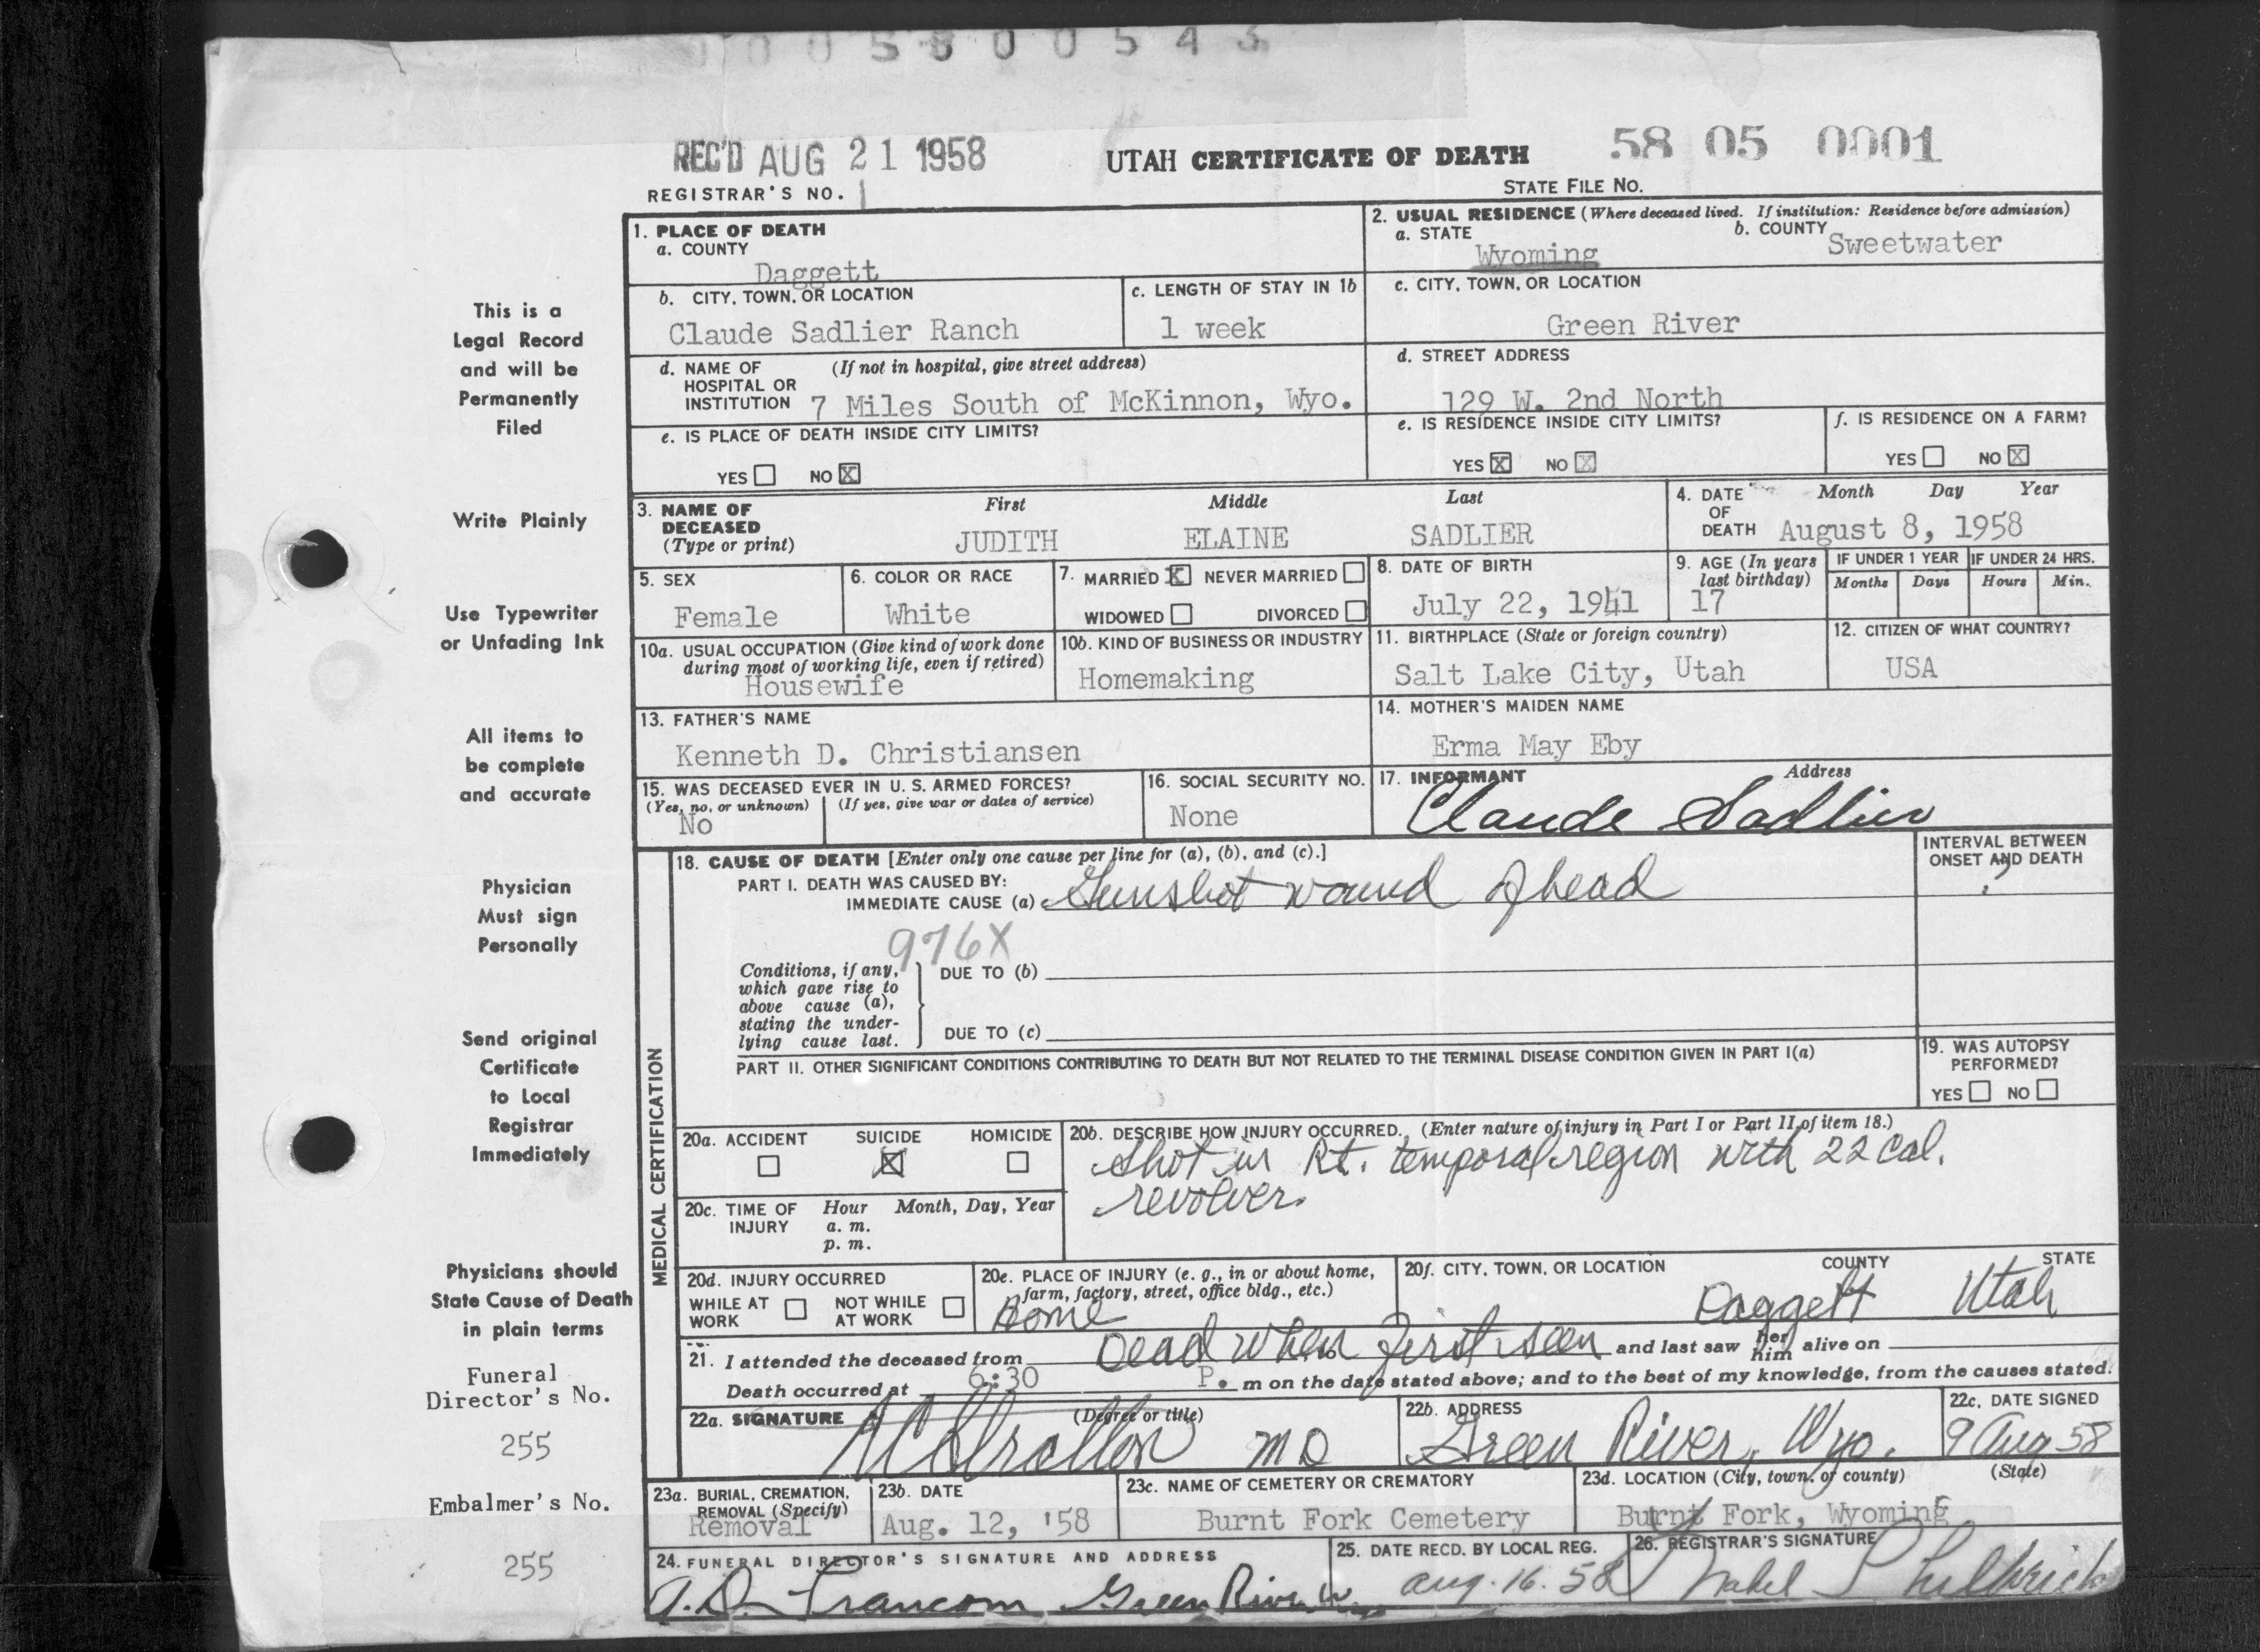 0 0 5 8 0 0 5 4 3
REC'D AUG 21 1958
UTAH CERTIFICATE OF DEATH
58 05 0001
REGISTRAR'S NO. 1
STATE FILE NO.
1. PLACE OF DEATH
a. COUNTY
Daggett
2. USUAL RESIDENCE (Where deceased lived. If institution: Residence before admission)
a. STATE
Wyoming
b. COUNTY
Sweetwater
b. CITY, TOWN, OR LOCATION
Claude Sadlier Ranch
c. LENGTH OF STAY IN 1b
1 week
c. CITY, TOWN, OR LOCATION
Green River
d. NAME OF HOSPITAL OR INSTITUTION
(If not in hospital, give street address)
7 Miles South of McKinnon, Wyo.
d. STREET ADDRESS
129 W. 2nd North
e. IS PLACE OF DEATH INSIDE CITY LIMITS?
YES NO X
e. IS RESIDENCE INSIDE CITY LIMITS?
YES X NO X
f. IS RESIDENCE ON A FARM?
YES NO X
3. NAME OF DECEASED (Type or print)
First Middle Last
JUDITH ELAINE SADLIER
4. DATE OF DEATH
Month Day Year
August 8, 1958
5. SEX
Female
6. COLOR OR RACE
White
7. MARRIED X NEVER MARRIED
WIDOWED DIVORCED
8. DATE OF BIRTH
July 22, 1941
9. AGE (In years last birthday)
17
IF UNDER 1 YEAR
Months Days
IF UNDER 24 HRS.
Hours Min.
10a. USUAL OCCUPATION (Give kind of work done during most of working life, even if retired)
Housewife
10b. KIND OF BUSINESS OR INDUSTRY
Homemaking
11. BIRTHPLACE (State or foreign country)
Salt Lake City, Utah
12. CITIZEN OF WHAT COUNTRY?
USA
13. FATHER'S NAME
Kenneth D. Christiansen
14. MOTHER'S MAIDEN NAME
Erma May Eby
15. WAS DECEASED EVER IN U. S. ARMED FORCES?
(Yes, no, or unknown) (If yes, give war or dates of service)
No
16. SOCIAL SECURITY NO.
None
17. INFORMANT Address
Claude Sadlier
MEDICAL CERTIFICATION
18. CAUSE OF DEATH [Enter only one cause per line for (a), (b), and (c).]
INTERVAL BETWEEN ONSET AND DEATH
?
PART I. DEATH WAS CAUSED BY:
IMMEDIATE CAUSE (a) Gunshot wound of head
976X
Conditions, if any, which gave rise to above cause (a), stating the underlying cause last.
DUE TO (b)
DUE TO (c)
PART II. OTHER SIGNIFICANT CONDITIONS CONTRIBUTING TO DEATH BUT NOT RELATED TO THE TERMINAL DISEASE CONDITION GIVEN IN PART I(a)
19. WAS AUTOPSY PERFORMED?
YES NO
20a. ACCIDENT SUICIDE HOMICIDE
X
20b. DESCRIBE HOW INJURY OCCURRED. (Enter nature of injury in Part I or Part II of item 18.)
Shot in Rt. temporal region with 22 cal.
revolver.
20c. TIME OF INJURY
Hour Month, Day, Year
a. m.
p. m.
20d. INJURY OCCURRED
WHILE AT WORK NOT WHILE AT WORK
20e. PLACE OF INJURY (e. g., in or about home, farm, factory, street, office bldg., etc.)
Home
20f. CITY, TOWN, OR LOCATION COUNTY STATE
Daggett Utah
21. I attended the deceased from Dead when first seen and last saw her him alive on
Death occurred at 6:30 P. m on the date stated above; and to the best of my knowledge, from the causes stated.
22a. SIGNATURE (Degree or title)
Stratton MD
22b. ADDRESS
Green River, Wyo.
22c. DATE SIGNED
9 Aug 58
23a. BURIAL, CREMATION, REMOVAL (Specify)
Removal
23b. DATE
Aug. 12, '58
23c. NAME OF CEMETERY OR CREMATORY
Burnt Fork Cemetery
23d. LOCATION (City, town, or county) (State)
Burnt Fork, Wyoming
24. FUNERAL DIRECTOR'S SIGNATURE AND ADDRESS
A.D. Francom Green River W
25. DATE RECD. BY LOCAL REG.
Aug. 16. 58
26. REGISTRAR'S SIGNATURE
Mabel Philbrick
This is a
Legal Record
and will be
Permanently
Filed
Write Plainly
Use Typewriter
or Unfading Ink
All items to
be complete
and accurate
Physician
Must sign
Personally
Send original
Certificate
to Local
Registrar
Immediately
Physicians should
State Cause of Death
in plain terms
Funeral
Director's No.
255
Embalmer's No.
255